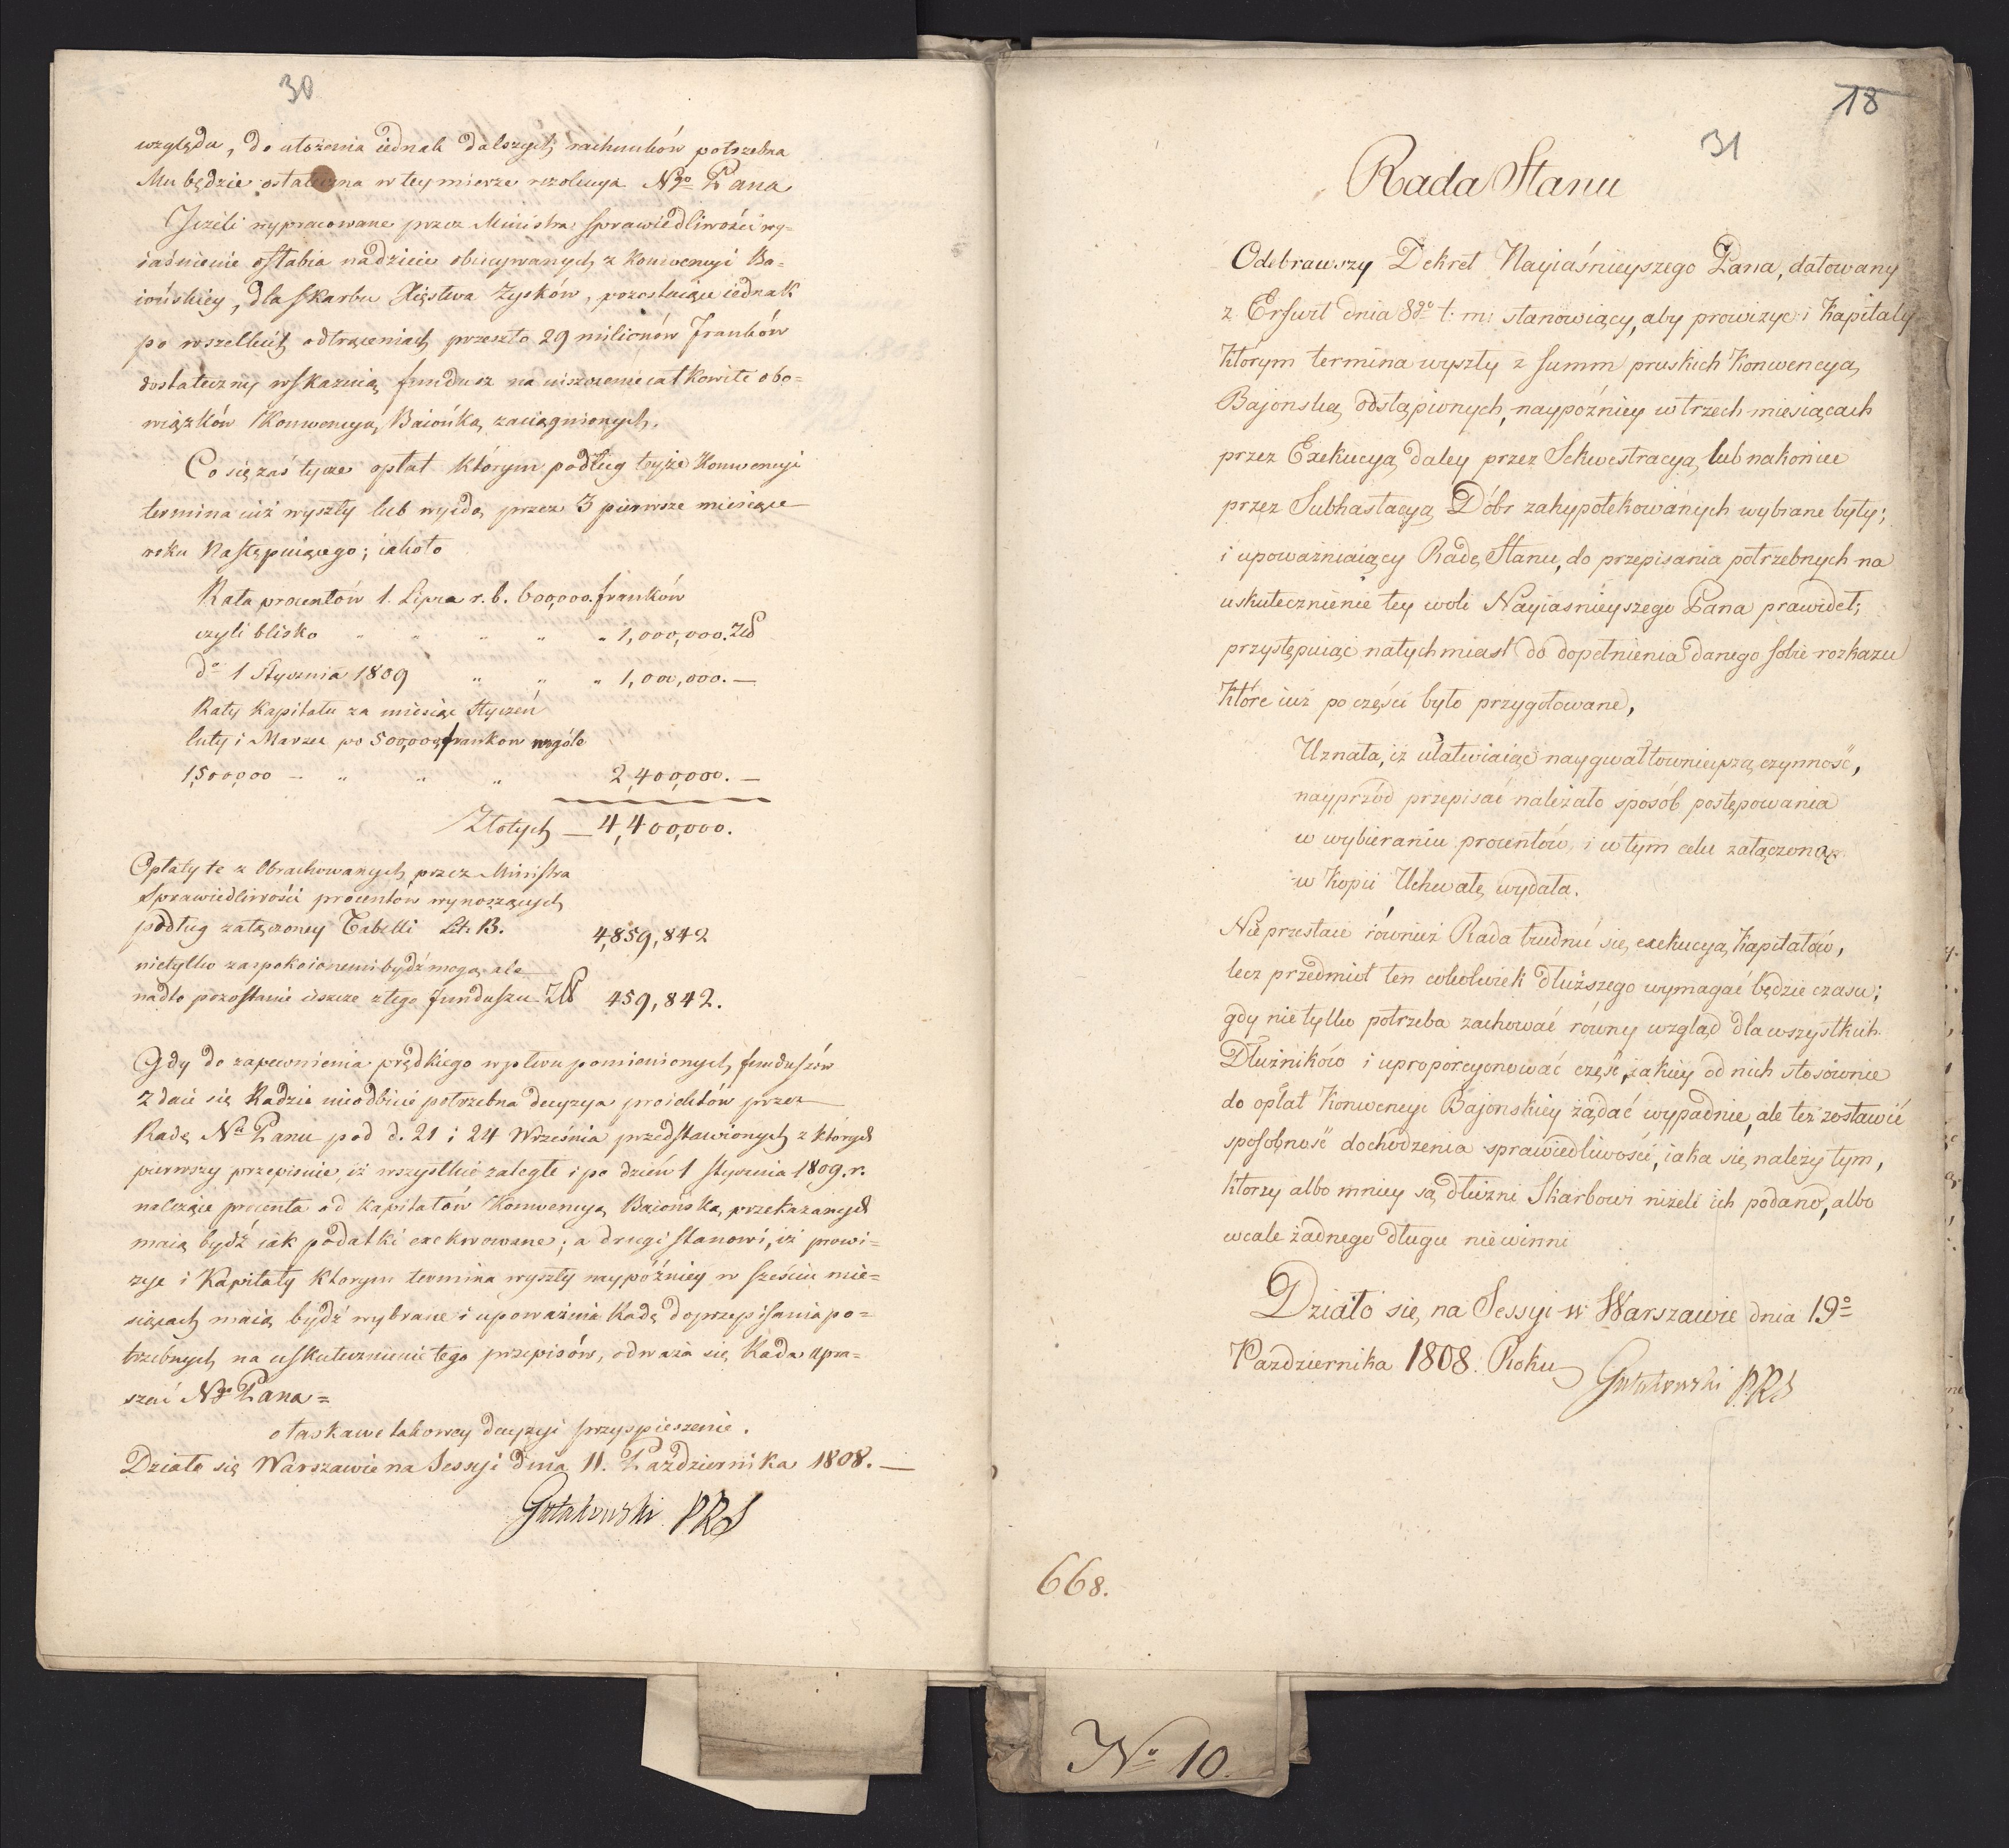 30
względu, do ułożenia iednak dalszych rachunków potrzebna
Mu będzie ostateczna w tey mierze rezolucya Ngo Pana
Jeżeli wypracowane przez Ministra Sprawiedliwości wy=
iaśnienie osłabia nadzieie obiecywanych z Konwencyi Ba=
iońskiey, dla Skarbu Xięstwa zysków, pozostaiące iednak
po wszelkich odtrąceniach przeszło 29 milionów franków
dostateczny wskazuią fundusz na uiszczenie całkowite obo=
wiązków Konwencyą Baiońką zaciągnionych.
Co się zaś tycze opłat którym podług teyże Konwencyi
termina iuż wyszły lub wyidą przez 3 pierwsze miesiące
roku następuiącego; iakoto
Rata procentów 1. Lipca r. b. 600,000. franków
czyli blisko " " " " " 1,000,000. Zł
do 1 Stycznia 1809 " " " 1,000,000. —
Raty Kapitału za miesiąc Styczeń
luty i Marzec po 500,000 franków wogóle
1,500,000 — " " " 2,400,000. —
Złotych — 4,400,000.
Opłaty te z Obrachowanych przez Ministra
Sprawiedliwości procentów wynoszących
podług załączoney Tabelli Lit. B. 4,859,842
nietylko zaspokoionemi bydź mogą ale
nadto pozostanie ieszcze z tego funduszu Zł 459,842.
Gdy do zapewnienia prędkiego wpływu pomienionych funduszów
zdaie się Radzie nieodbicie potrzebna decyzya proiektów przez
Radę Nu Panu pod d. 21 i 24 Września przedstawionych z których
pierwszy przepisuie, iż wszystkie zaległe i po dzień 1 Stycznia 1809. r.
należące procenta od Kapitałów Konwencyą Baiońską przekazanych
maią bydź iak podatki exekwowane; a drugi stanowi, iż prowi=
zye i Kapitały ktorym termina wyszły naypóźniey w sześciu mie=
siącach maią bydź wybrane i upoważnia Radę do przepisania po=
trzebnych na uskutecznienie tego przepisów, odważa się Rada upra=
szać Ngo Pana =
o łaskawe takowey decyzyi przyspieszenie.
Działo się Warszawie na Sessyi dnia 11. Października 1808. —
Gutakowski PRS
18
31
Rada Stanu
Odebrawszy Dekret Nayiaśnieyszego Pana, datowany
z Erfurt dnia 8go t: m: stanowiący, aby prowizye i Kapitały
którym termina wyszły z summ pruskich Konwencyą
Bajonską odstąpionych, naypóźniey w trzech miesiącach
przez Exekucyą daley przez Sekwestracyą lub nakoniec
przez Subhastacyą Dóbr zahypotekowanych wybrane były;
i upoważniaiący Radę Stanu, do przepisania potrzebnych na
uskutecznienie tey woli Nayiaśnieyszego Pana prawideł;
przystępuiąc natychmiast do dopełnienia danego sobie rozkazu
które iuż po części było przygotowane,
Uznała, iż ułatwiaiąc naygwałtownieyszą czynność,
nayprzód przepisać należało sposób postępowania
w wybieraniu procentów i w tym celu załączoną
w Kopii Uchwałę wydała.
Nie przestaie również Rada trudnić się exekucyą Kapitałów,
lecz przedmiot ten cokolwiek dłuższego wymagać będzie czasu;
gdy nie tylko potrzeba zachować równy wzgląd dla wszystkich
Dłużników i uproporcyonować część, iakiey od nich stosownie
do opłat Konwencyi Bajonskiey żądać wypadnie, ale też zostawić
sposobność dochodzenia sprawiedliwości, iaka się należy tym,
ktorzy albo mniey są dłużni Skarbowi niżeli ich podano, albo
wcale żadnego długu nie winni
Działo się na Sessyi w Warszawie dnia 19o
Października 1808. Roku
Gutakowski PRS
668.
No 10.